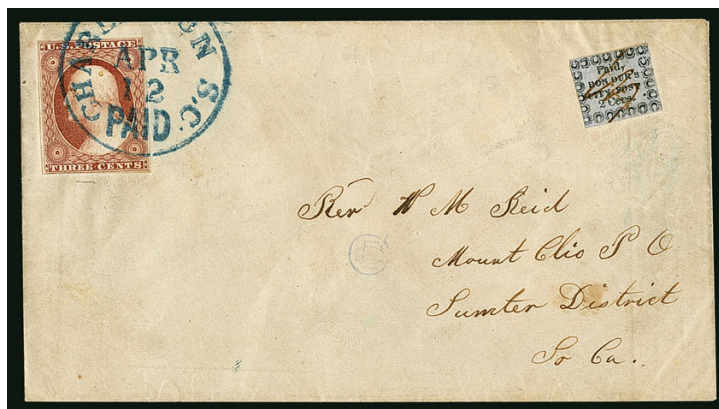 U.S. POSTAGE
THREE CENTS
CHARLESTON S.C.
APR
12
PAID
Paid,
HONOUR'S
CITY POST
2 Cents.
Rev W M Reid
Mount Clio P O
Sumter District
So Ca.